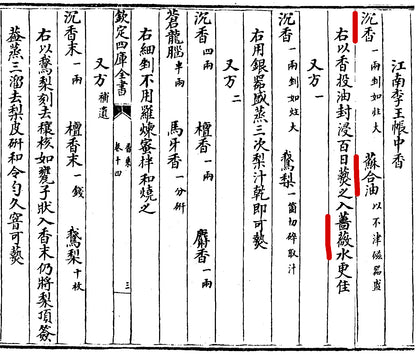 江南李王帳中香
沉香一兩剉如炷大　蘇合油以不津磁器盛
右以香投油封浸百日爇之入薔薇水更佳
又方一
沉香一兩剉如炷大　鵞梨一箇切碎取汁
右用銀器盛蒸三次梨汁乾即可爇
又方二
沉香四兩　檀香一兩　麝香一兩
蒼龍腦半兩　馬牙香一分研
右細剉不用羅煉蜜拌和燒之
欽定四庫全書　香乘　卷十四　三
又方補遺
沉香末一兩　檀香末一錢　鵞梨十枚
右以鵞梨刻去穰核如甕子狀入香末仍將梨頂簽
葢蒸三溜去梨皮研和令勻久窨可爇